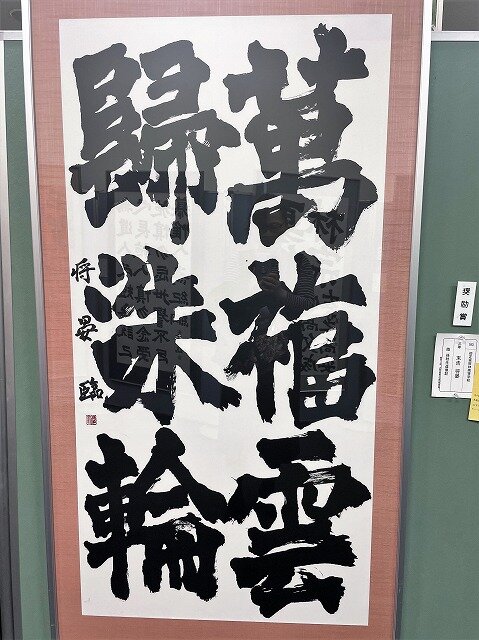 萬福雲
歸洙輪
将晏 臨
奨励賞